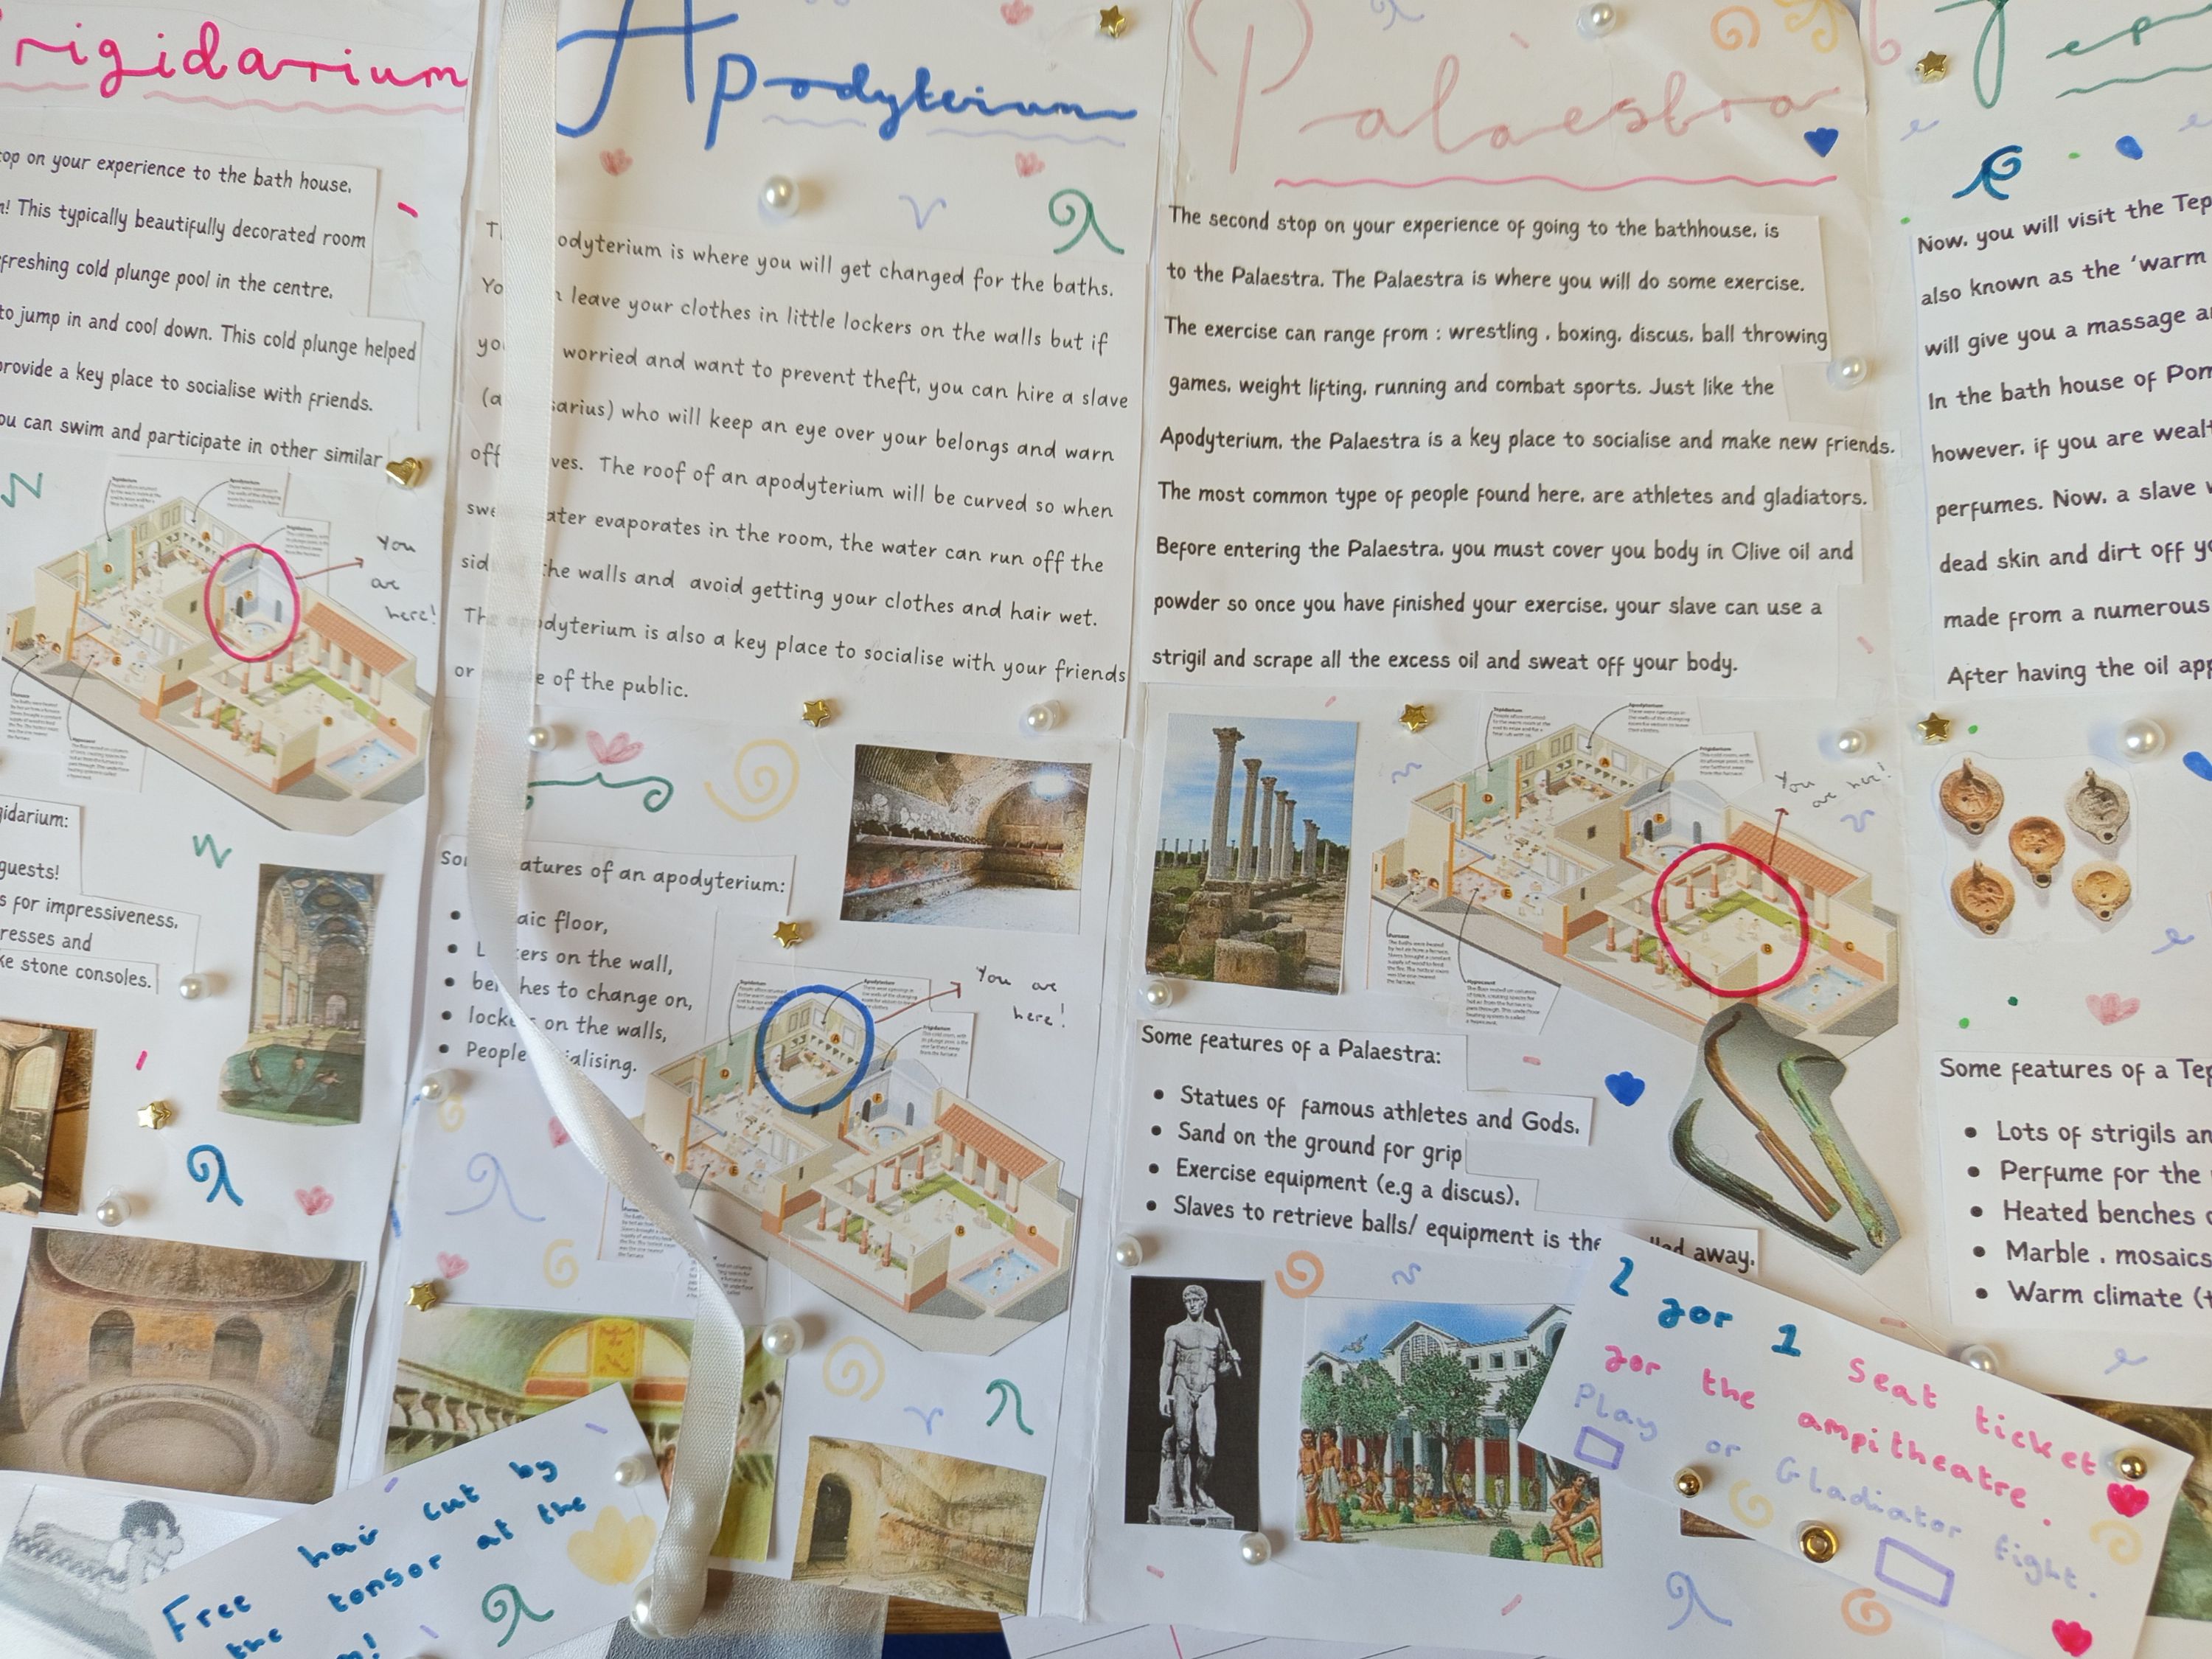 rigidarium
top on your experience to the bath house,
! This typically beautifully decorated room
freshing cold plunge pool in the centre,
to jump in and cool down. This cold plunge helped
provide a key place to socialise with friends.
ou can swim and participate in other similar
You
are
here!
gidarium:
guests!
s for impressiveness,
resses and
ke stone consoles.
Apodyterium
odyterium is where you will get changed for the baths.
leave your clothes in little lockers on the walls but if
worried and want to prevent theft, you can hire a slave
(a sarius) who will keep an eye over your belongs and warn
off ves. The roof of an apodyterium will be curved so when
swe ater evaporates in the room, the water can run off the
sid the walls and avoid getting your clothes and hair wet.
The apodyterium is also a key place to socialise with your friends
or e of the public.
So atures of an apodyterium:
• aic floor,
• L kers on the wall,
• benches to change on,
• lockers on the walls,
• People ialising.
You are
here!
Free hair cut by
the tonsor at the
Palaestra
The second stop on your experience of going to the bathhouse, is
to the Palaestra. The Palaestra is where you will do some exercise.
The exercise can range from : wrestling , boxing, discus, ball throwing
games, weight lifting, running and combat sports. Just like the
Apodyterium, the Palaestra is a key place to socialise and make new friends.
The most common type of people found here, are athletes and gladiators.
Before entering the Palaestra, you must cover you body in Olive oil and
powder so once you have finished your exercise, your slave can use a
strigil and scrape all the excess oil and sweat off your body.
You are here!
Some features of a Palaestra:
• Statues of famous athletes and Gods.
• Sand on the ground for grip
• Exercise equipment (e.g a discus).
• Slaves to retrieve balls/ equipment is the lled away.
2 for 1 seat ticket
for the ampitheatre.
Play or Gladiator fight.
Tep
Now, you will visit the Tep
also known as the 'warm
will give you a massage a
In the bath house of Pom
however, if you are wealt
perfumes. Now, a slave w
dead skin and dirt off yo
made from a numerous
After having the oil app
Some features of a Tep
• Lots of strigils an
• Perfume for the
• Heated benches
• Marble , mosaics
• Warm climate (t